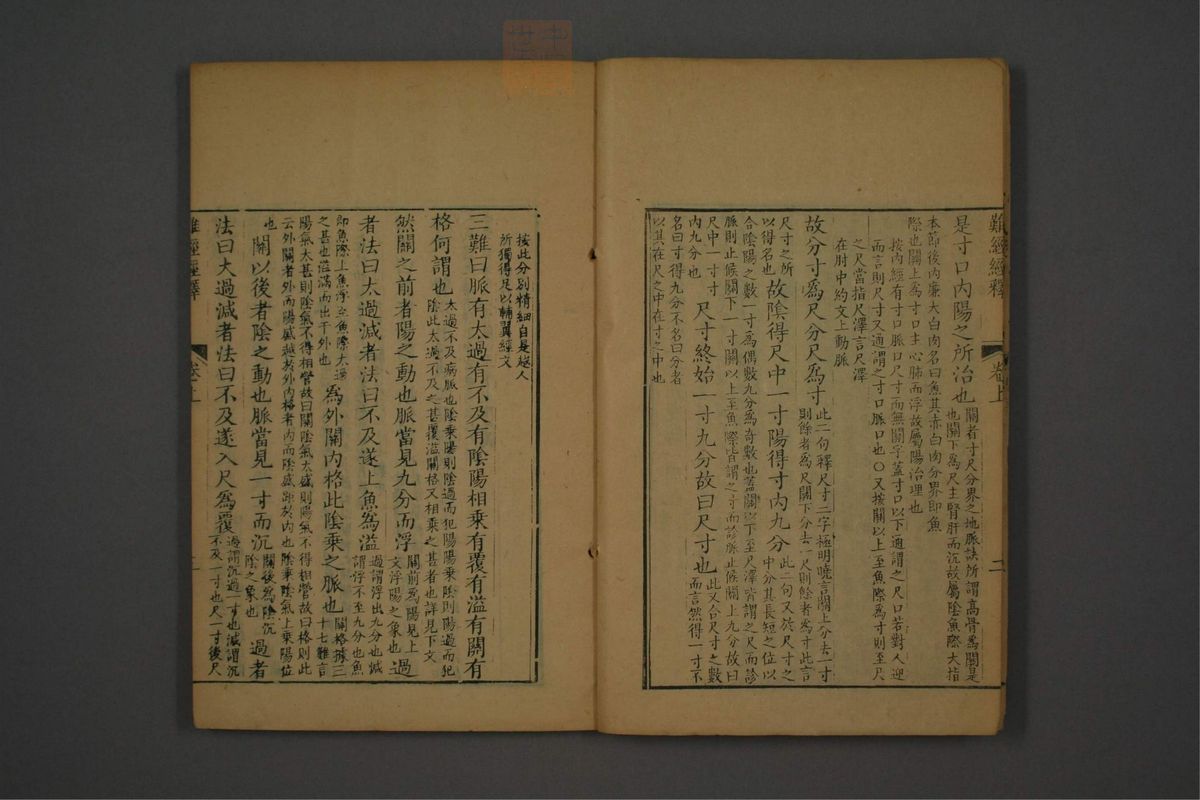 難經經釋
卷上
二
是寸口內陽之所治也關者寸尺分界之地脈訣所謂高骨爲關是
也關下爲尺主腎肝而沉故屬陰魚際大指
本節後內廉大白肉名曰魚其赤白肉分界即魚
際也關上爲寸口主心肺而浮故屬陽治理也
按內經有寸口脈口尺寸而無關字蓋寸口以下通謂之尺口若對人迎
而言則尺寸又通謂之寸口脈口也○又按關以上至魚際爲寸則至尺
之尺當指尺澤言尺澤
在肘中約文上動脈
故分寸爲尺分尺爲寸此二句釋尺寸二字極明曉言關上分去一寸
則餘者爲尺關下分去一尺則餘者爲寸此言
尺寸之所
以得名也故陰得尺中一寸陽得寸內九分此二句又於尺寸之
中分其長短之位以
合陰陽之數一寸爲偶數九分爲奇數也蓋關以下至尺澤皆謂之尺而診
脈則止候關下一寸關以上至魚際皆謂之寸而診脈止候關上九分故曰
尺中一寸寸
內九分也尺寸終始一寸九分故曰尺寸也此又合尺寸之數
而言然得一寸不
名曰寸得九分不名曰分者
以其在尺之中在寸之中也
按此分別精細自是越人
所獨得足以輔翼經文
三難曰脈有太過有不及有陰陽相乘有覆有溢有關有
格何謂也太過不及病脈也陰乘陽則陰過而犯陽陽乘陰則陽過而犯
陰此太過不及之甚覆溢關格又相乘之甚者也詳見下文
然關之前者陽之動也脈當見九分而浮關前爲陽見上
文浮陽之象也過
者法曰太過減者法曰不及遂上魚爲溢過謂浮出九分也減
謂浮不至九分也魚
即魚際上魚浮至魚際太過
之甚也溢滿而出于外也爲外關內格此陰乘之脈也關格據三
十七難言
陽氣太甚則陰氣不得相營故曰關陰氣太盛則陽氣不得相營故曰格則此
云外關者外而陽盛越於外內格者內而陰盛距於內也陰乘陰氣上乘陽位
也關以後者陰之動也脈當見一寸而沉關後爲陰沉
陰之象也過者
法曰太過減者法曰不及遂入尺爲覆過謂沉過一寸也減謂沉
不及一寸也尺一寸後尺
難經經釋
卷上